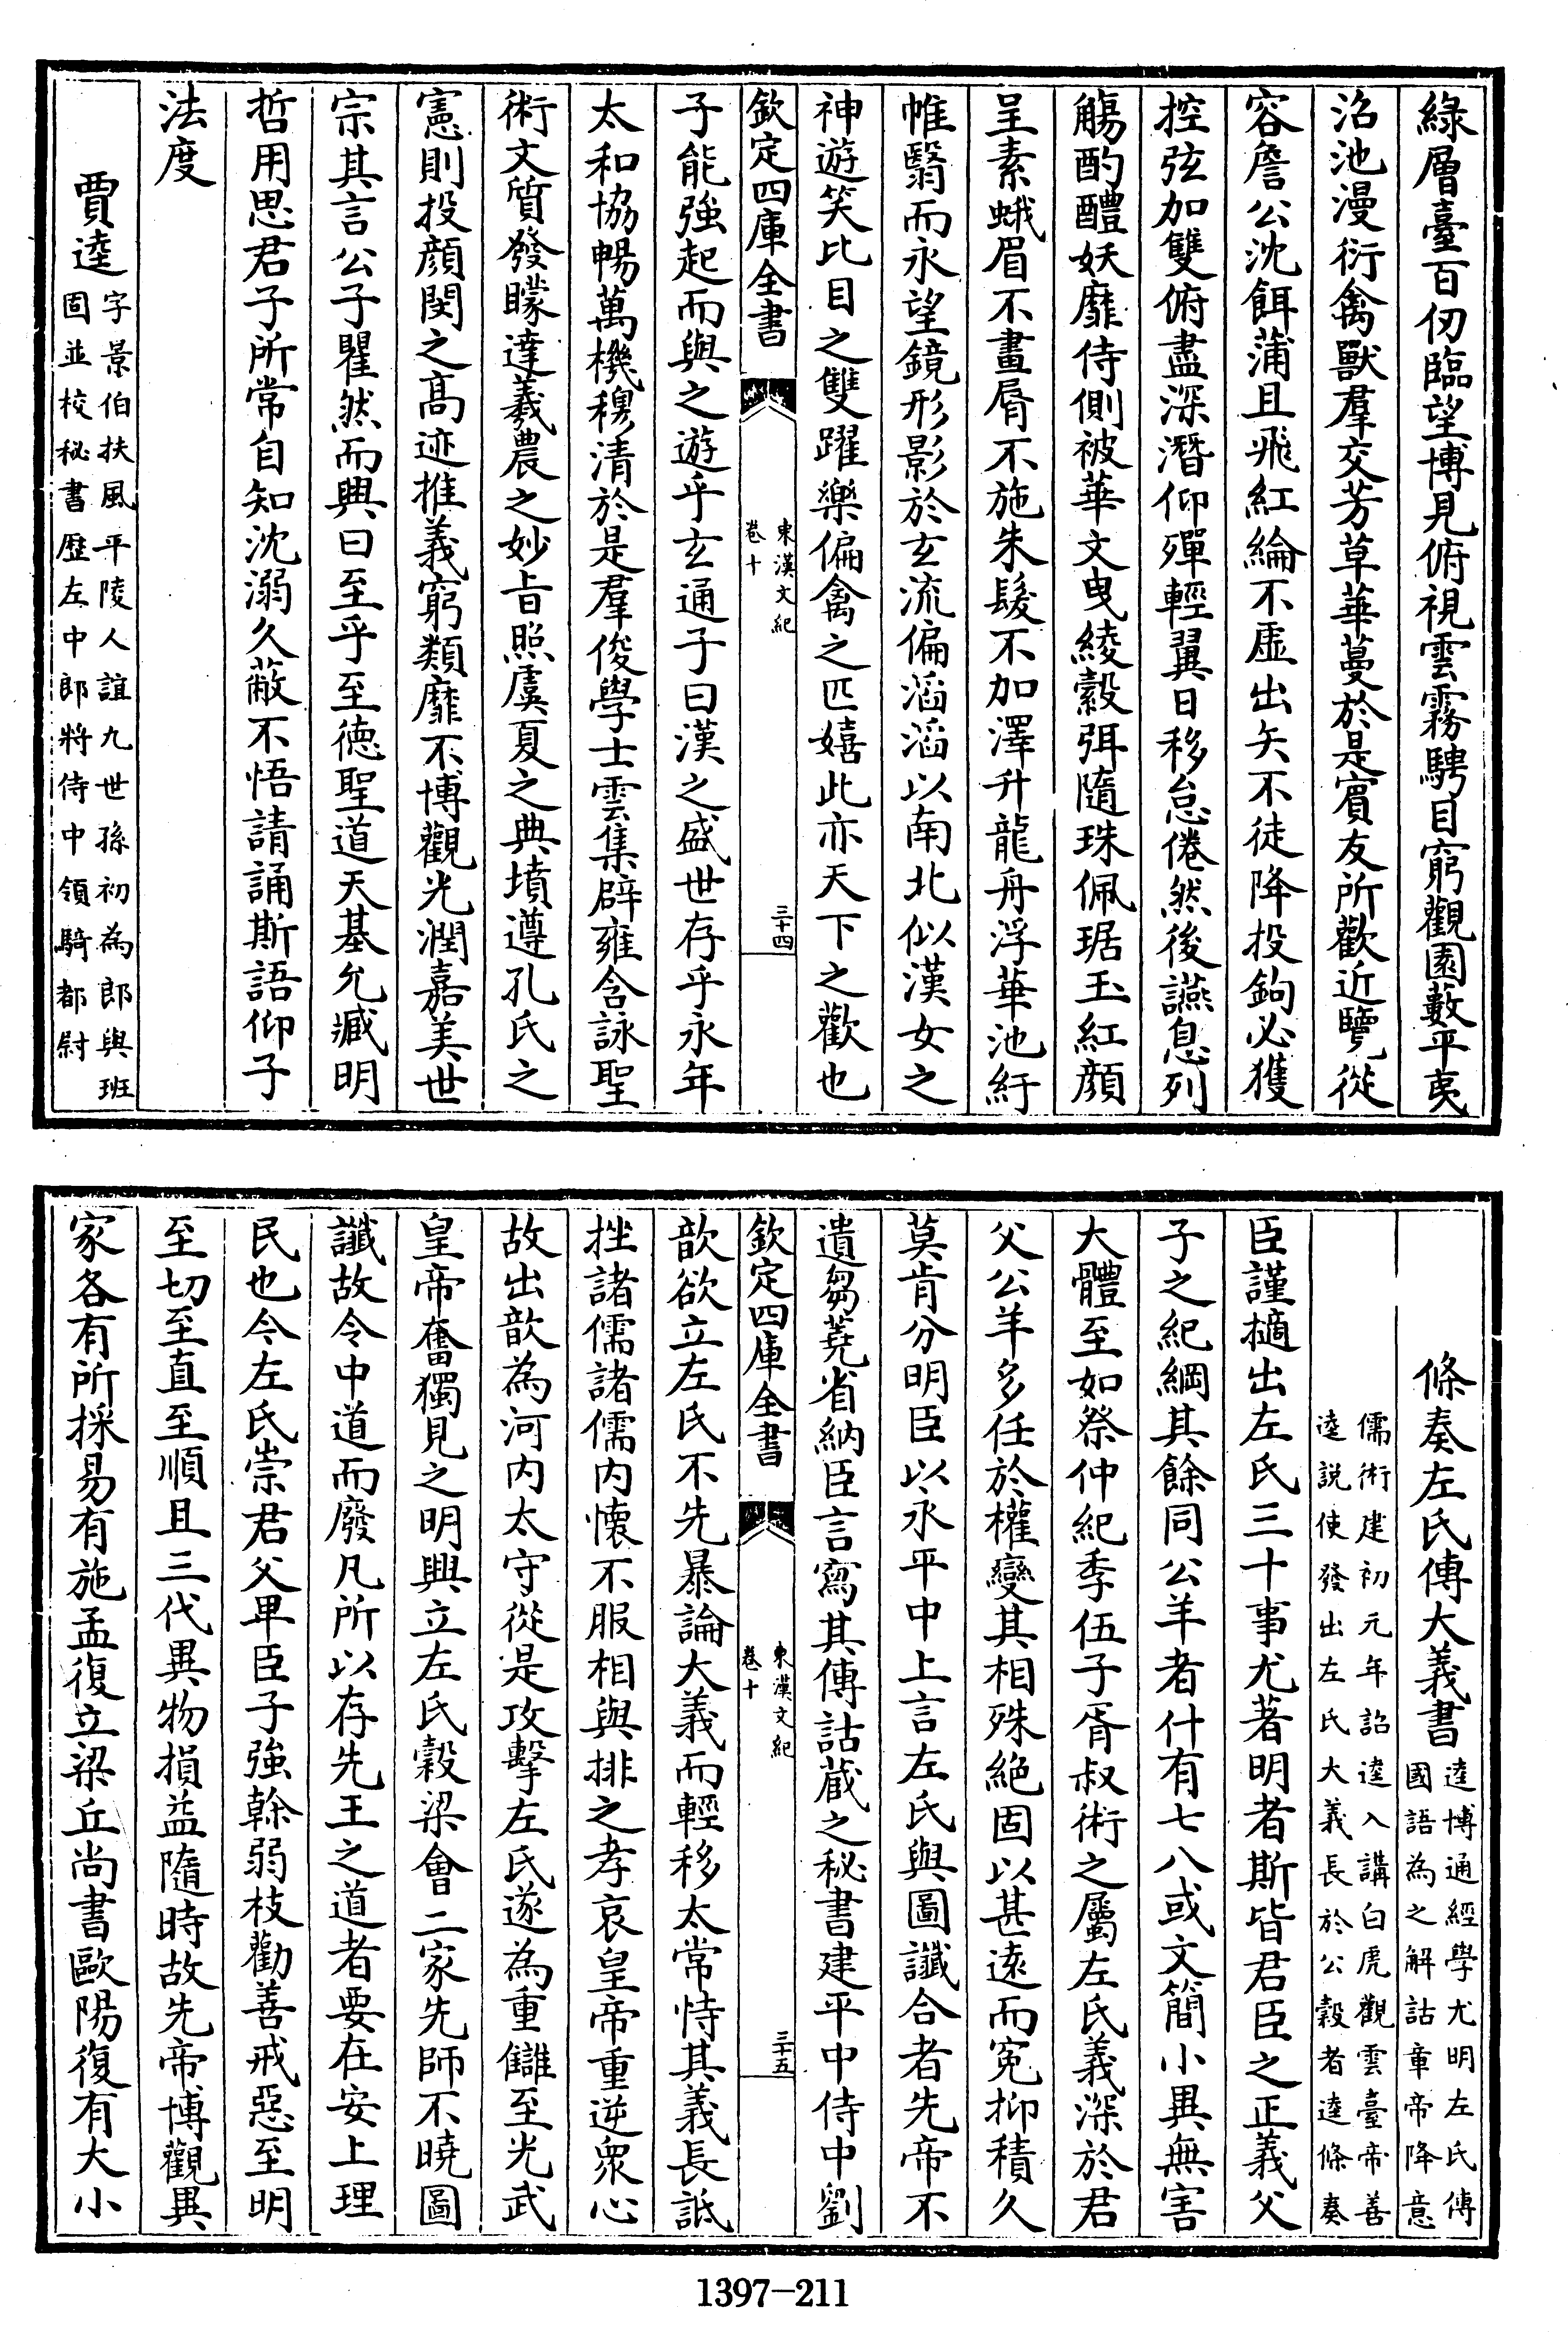 綠層臺百仞臨望博見俯視雲霧騁目窮觀園藪平夷
沼池漫衍禽獸羣交芳草華蔓於是賓友所歡近覽從
容詹公沈餌蒲且飛紅綸不虛出矢不徒降投鉤必獲
控弦加雙俯盡深潛仰殫輕翼日移怠倦然後讌息列
觴酌醴妖靡侍側被華文曳綾縠弭隨珠佩琚玉紅顔
呈素蛾眉不畫脣不施朱髮不加澤升龍舟浮華池紆
帷翳而永望鏡形影於玄流偏滔滔以南北似漢女之
神遊笑比目之雙躍樂偏禽之匹嬉此亦天下之歡也
欽定四庫全書
東漢文紀
卷十
三十四
子能強起而與之遊乎玄通子曰漢之盛世存乎永年
太和協暢萬機穆清於是羣俊學士雲集辟雍含詠聖
術文質發矇達羲農之妙旨照虞夏之典墳遵孔氏之
憲則投顔閔之高迹推義窮類靡不博觀光潤嘉美世
宗其言公子瞿然而興曰至乎至德聖道天基允臧明
哲用思君子所常自知沈溺久蔽不悟請誦斯語仰子
法度
賈逵
字景伯扶風平陵人誼九世孫初為郎與班
固並校秘書歷左中郎將侍中領騎都尉
條奏左氏傳大義書
逵博通經學尤明左氏傳
國語為之解詁章帝降意
儒術建初元年詔逵入講白虎觀雲臺帝善
逵說使發出左氏大義長於公穀者逵條奏
臣謹擿出左氏三十事尤著明者斯皆君臣之正義父
子之紀綱其餘同公羊者什有七八或文簡小異無害
大體至如祭仲紀季伍子胥叔術之屬左氏義深於君
父公羊多任於權變其相殊絕固以甚遠而冤抑積久
莫肯分明臣以永平中上言左氏與圖讖合者先帝不
遺芻蕘省納臣言寫其傳詁藏之秘書建平中侍中劉
欽定四庫全書
東漢文紀
卷十
三十五
歆欲立左氏不先暴論大義而輕移太常恃其義長詆
挫諸儒諸儒內懷不服相與排之孝哀皇帝重逆衆心
故出歆為河內太守從是攻擊左氏遂為重讎至光武
皇帝奮獨見之明興立左氏穀梁會二家先師不曉圖
讖故令中道而廢凡所以存先王之道者要在安上理
民也今左氏崇君父卑臣子強幹弱枝勸善戒惡至明
至切至直至順且三代異物損益隨時故先帝博觀異
家各有所採易有施孟復立梁丘尚書歐陽復有大小
1397-211